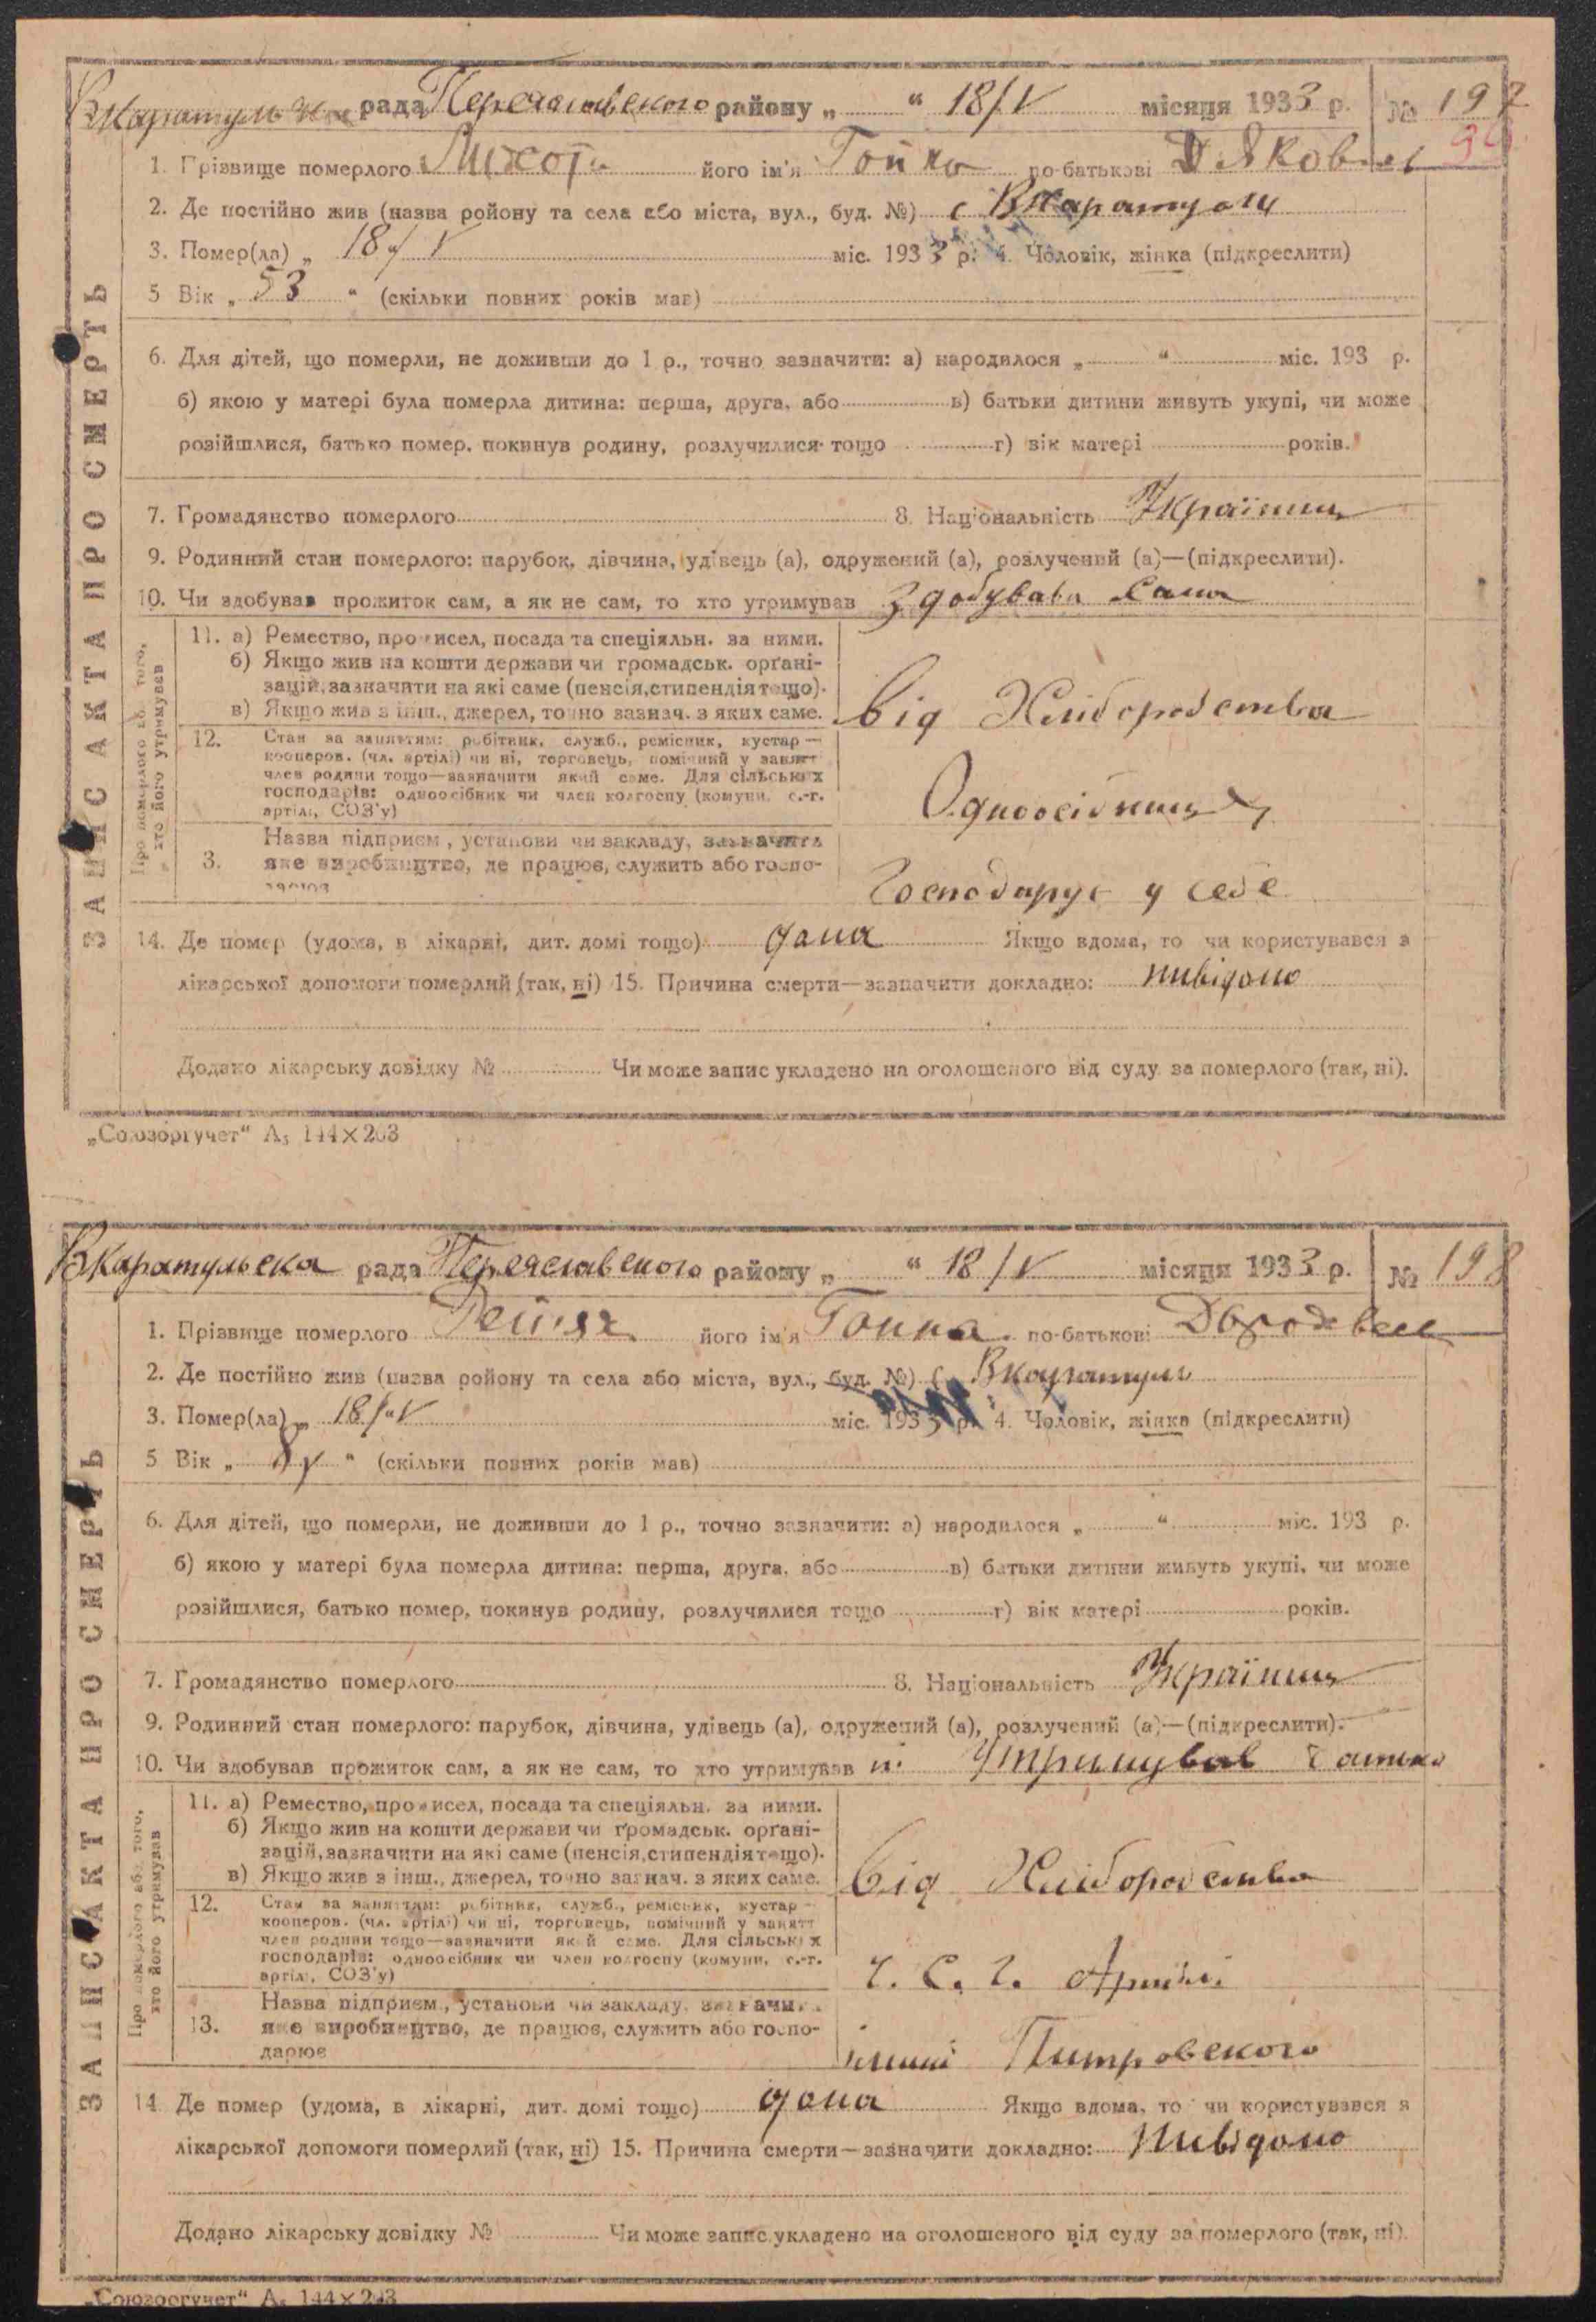 Вкаратульська рада Переяславского району „ “ 18/V місяця 1933 р. № 197
99
1. Прізвище померлого його ім'я по-батькові Яковл
2. Де постійно жив (назва ройону та села або міста, вул., буд. №) с Вкаратули
3. Помер(ла) „ 18/V міс. 1933 р. 4. Чоловік, жінка (підкреслити)
5 Вік „ 53 “ (скільки повних років мав)
6. Для дітей, що померли, не доживши до 1 р., точно зазначити: а) народилося „ “ міс. 193 р.
б) якою у матері була померла дитина: перша, друга, або в) батьки дитини живуть укупі, чи може
розійшлися, батько помер, покинув родину, розлучилися тощо г) вік матері років.
7. Громадянство померлого 8. Національність Українц
9. Родинний стан померлого: парубок, дівчина, удівець (а), одружений (а), розлучений (а)—(підкреслити).
10. Чи здобував прожиток сам, а як не сам, то хто утримував Здобувала сама
ЗАПИС АКТА ПРО СМЕРТЬ
Про померлого або того, хто його утримував
11. а) Ремество, промисел, посада та спеціяльн. за ними.
б) Якщо жив на кошти держави чи громадськ. орґані-
зацій, зазначити на які саме (пенсія, стипендія тощо).
в) Якщо жив з інш., джерел, точно зазнач. з яких саме.
від Хліборобства
12. Стан за заняттям: робітник, служб., ремісник, кустар—
кооперов. (чл. артілі) чи ні, торговець, помічний у занятт
член родини тощо—зазначити який саме. Для сільських
господарів: одноосібник чи член колгоспу (комуни, с.-г.
артілі, СОЗ'у)
Одноосібниця
Назва підприєм., установи чи закладу, зазначити
3. яке виробництво, де працює, служить або госпо-
дарює
Господарує у себе
14. Де помер (удома, в лікарні, дит. домі тощо) дома Якщо вдома, то чи користувався з
лікарської допомоги померлий (так, ні) 15. Причина смерти—зазначити докладно: нивідомо
Додано лікарську довідку № Чи може запис укладено на оголошеного від суду за померлого (так, ні).
„Союзоргучет“ А₅ 144×203
Вкаратульска рада Переяславского району „ “ 18/V місяця 1933 р. № 198
1. Прізвище померлого його ім'я Ганна по-батькові
2. Де постійно жив (назва ройону та села або міста, вул., буд. №) с Вкаратули
3. Помер(ла) „ 18/V міс. 1933 р. 4. Чоловік, жінка (підкреслити)
5 Вік „ “ (скільки повних років мав)
6. Для дітей, що померли, не доживши до 1 р., точно зазначити: а) народилося „ “ міс. 193 р.
б) якою у матері була померла дитина: перша, друга, або в) батьки дитини живуть укупі, чи може
розійшлися, батько помер, покинув родину, розлучилися тощо г) вік матері років.
7. Громадянство померлого 8. Національність Українц
9. Родинний стан померлого: парубок, дівчина, удівець (а), одружений (а), розлучений (а)—(підкреслити).
10. Чи здобував прожиток сам, а як не сам, то хто утримував ні Утримував батько
ЗАПИС АКТА ПРО СМЕРТЬ
Про померлого або того, хто його утримував
11. а) Ремество, промисел, посада та спеціяльн. за ними.
б) Якщо жив на кошти держави чи громадськ. орґані-
зацій, зазначити на які саме (пенсія, стипендія тощо).
в) Якщо жив з інш., джерел, точно зазнач. з яких саме.
від Хліборобства
12. Стан за заняттям: робітник, служб., ремісник, кустар—
кооперов. (чл. артілі) чи ні, торговець, помічний у занятт
член родини тощо—зазначити який саме. Для сільських
господарів: одноосібник чи член колгоспу (комуни, с.-г.
артілі, СОЗ'у)
ч. С. г. Артілі
Назва підприєм., установи чи закладу, зазначити
13. яке виробництво, де працює, служить або госпо-
дарює
імині Питровского
14 Де помер (удома, в лікарні, дит. домі тощо) дома Якщо вдома, то чи користувався з
лікарської допомоги померлий (так, ні) 15. Причина смерти—зазначити докладно: Нивідомо
Додано лікарську довідку № Чи може запис укладено на оголошеного від суду за померлого (так, ні).
„Союзоргучет“ А₅ 144×203